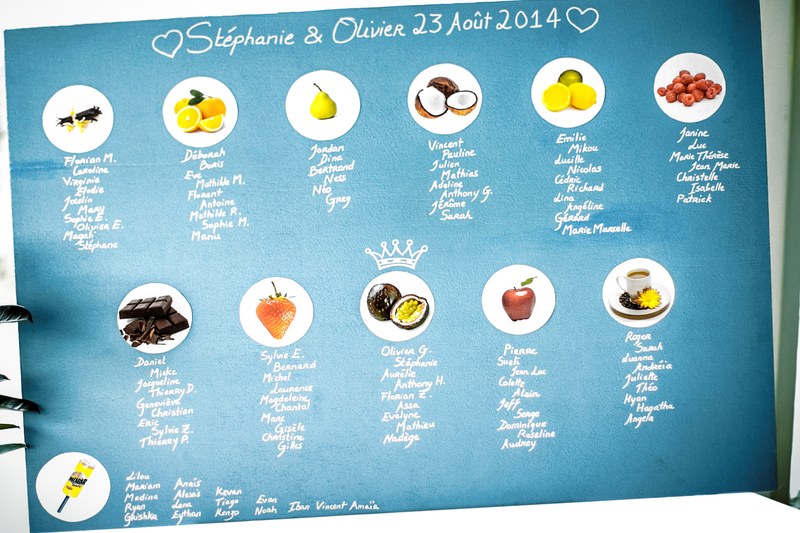 Stéphanie & Olivier 23 Août 2014
Florian M.
Caroline
Virginie
Elodie
Jocelin
Mary
Sophie E.
Olivier E.
Magali
Stéphane
Déborah
Boris
Eve
Mathilde M.
Florent
Antoine
Mathilde R.
Sophie M.
Manu
Jordan
Dina
Bertrand
Ness
Néo
Greg
Vincent
Pauline
Julien
Mathias
Adeline
Anthony G.
Jérôme
Sarah
Emilie
Mikou
Lucille
Nicolas
Cédric
Richard
Lina
Angéline
Gérard
Marie Marcelle
Janine
Luc
Marie Thérèse
Jean Marie
Christelle
Isabelle
Patrick
Daniel
Mieke
Jacqueline
Thierry D.
Geneviève
Christian
Eric
Sylvie Z.
Thierry P.
Sylvie E.
Bernard
Michel
Laurence
Magdeleine
Chantal
Marc
Gisèle
Christine
Gilles
Olivier G.
Stéphanie
Aurélie
Anthony H.
Florian Z.
Assa
Evelyne
Mathieu
Nadège
Pierre
Sueli
Jean Luc
Colette
Alain
Jeff
Serge
Dominique
Roseline
Audrey
Roger
Sarah
Luanna
Andréia
Juliette
Théo
Hyan
Hagatha
Angela
Lilou
Mariam Anaïs
Medina Alexis Kevan
Ryan Lana Tiago Evan
Ghishka Eythan Kenzo Noah Iban Vincent Amaïa